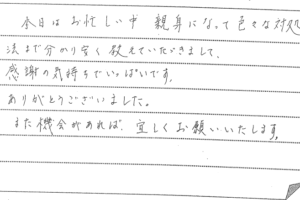 本日はお忙しい中 親身になって色々な対処
法まで分かり安く教えていただきまして、
感謝の気持ちでいっぱいです。
ありがとうございました。
また機会があれば、宜しくお願いいたします。